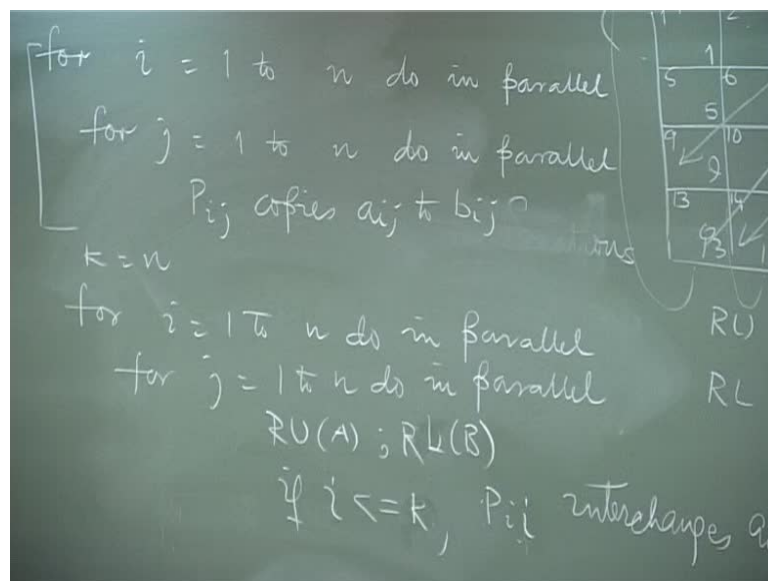 for i = 1 to n do in parallel
for j = 1 to n do in parallel
Pij copies aij to bij
k = n
for i = 1 to n do in parallel
for j = 1 to n do in parallel
RU(A) ; RL(B)
if i <= k, Pii interchanges
1 2
5 6
5
9 10
9
13 14
13
RU
RL